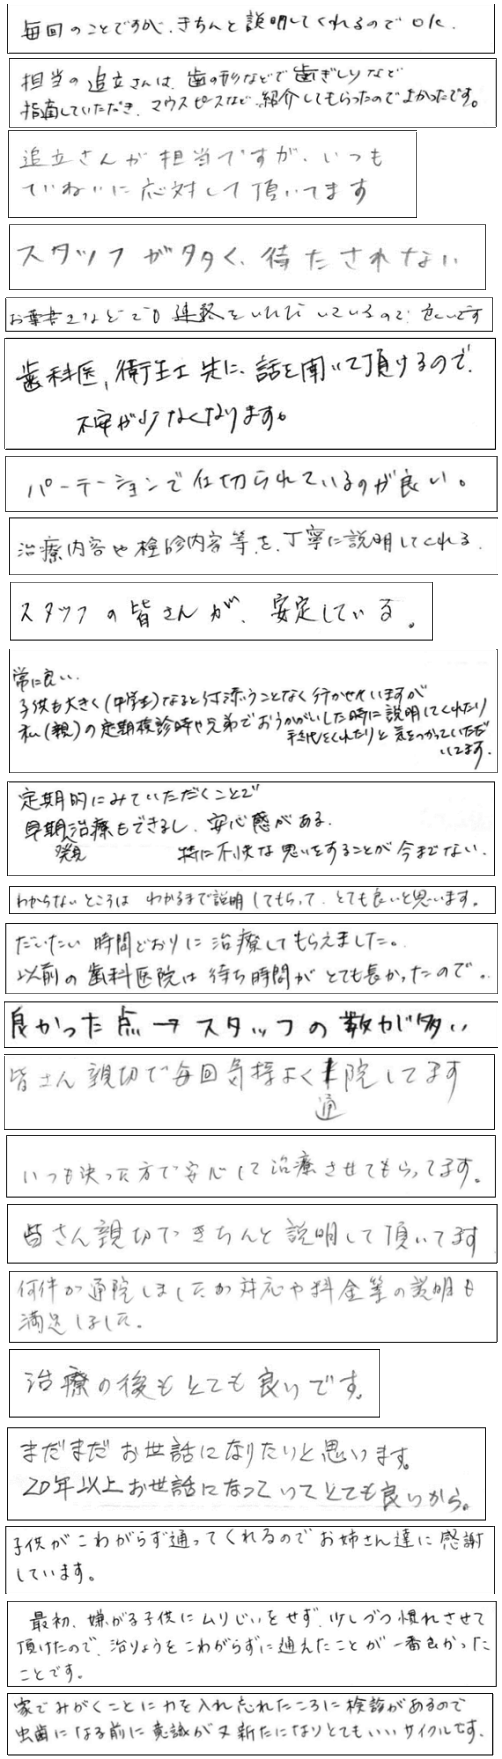 毎回のことですが、きちんと説明してくれるのでOK.
担当の追立さんは、歯の形などで歯ぎしりなど
指南していただき、マウスピースなど紹介してもらったのでよかったです。
追立さんが担当ですが、いつも
ていねいに応対して頂いてます
スタッフが多く、待たされない
お葉書などでも連絡をいただいているので
歯科医,衛生士先に、話を聞いて頂けるので、
不安が少なくなります。
パーテーションで仕切られているのが良い。
治療内容や検診内容等を、丁寧に説明してくれる.
スタッフの皆さんが、安定している。
常に良い.
子供も大きく(中学生)なると付添うことなく行かせていますが
私(親)の定期検診時や兄弟でおうかがいした時に説明してくれたり
手紙をくれたりと気をつかっていただ
いてます.
定期的にみていただくことで
早期治療もできるし、安心感がある.
発見 特に不快な思いをすることが今までない.
わからないところは わかるまで説明してもらって、とても良いと思います。
だいたい時間どおりに治療してもらえました。
以前の歯科医院は待ち時間がとても長かったので..
良かった点→スタッフの数が多い
皆さん親切で毎回気持よく院してます
通
いつも決った方で安心して治療させてもらってます。
皆さん親切できちんと説明して頂いてます
何件か通院しましたが対応や料金等の説明も
満足しました。
治療の後もとても良いです。
まだまだお世話になりたいと思います。
20年以上お世話になっていてとても良いから。
子供がこわがらず通ってくれるのでお姉さん達に感謝
しています。
最初、嫌がる子供にムリじいをせず、少しづつ慣れさせて
頂けたので、治りょうをこわがらずに通えたことが一番良かった
ことです。
家でみがくことに力を入れ忘れたころに検診があるので
虫歯になる前に意識が又新たになりとてもいいサイクルです.